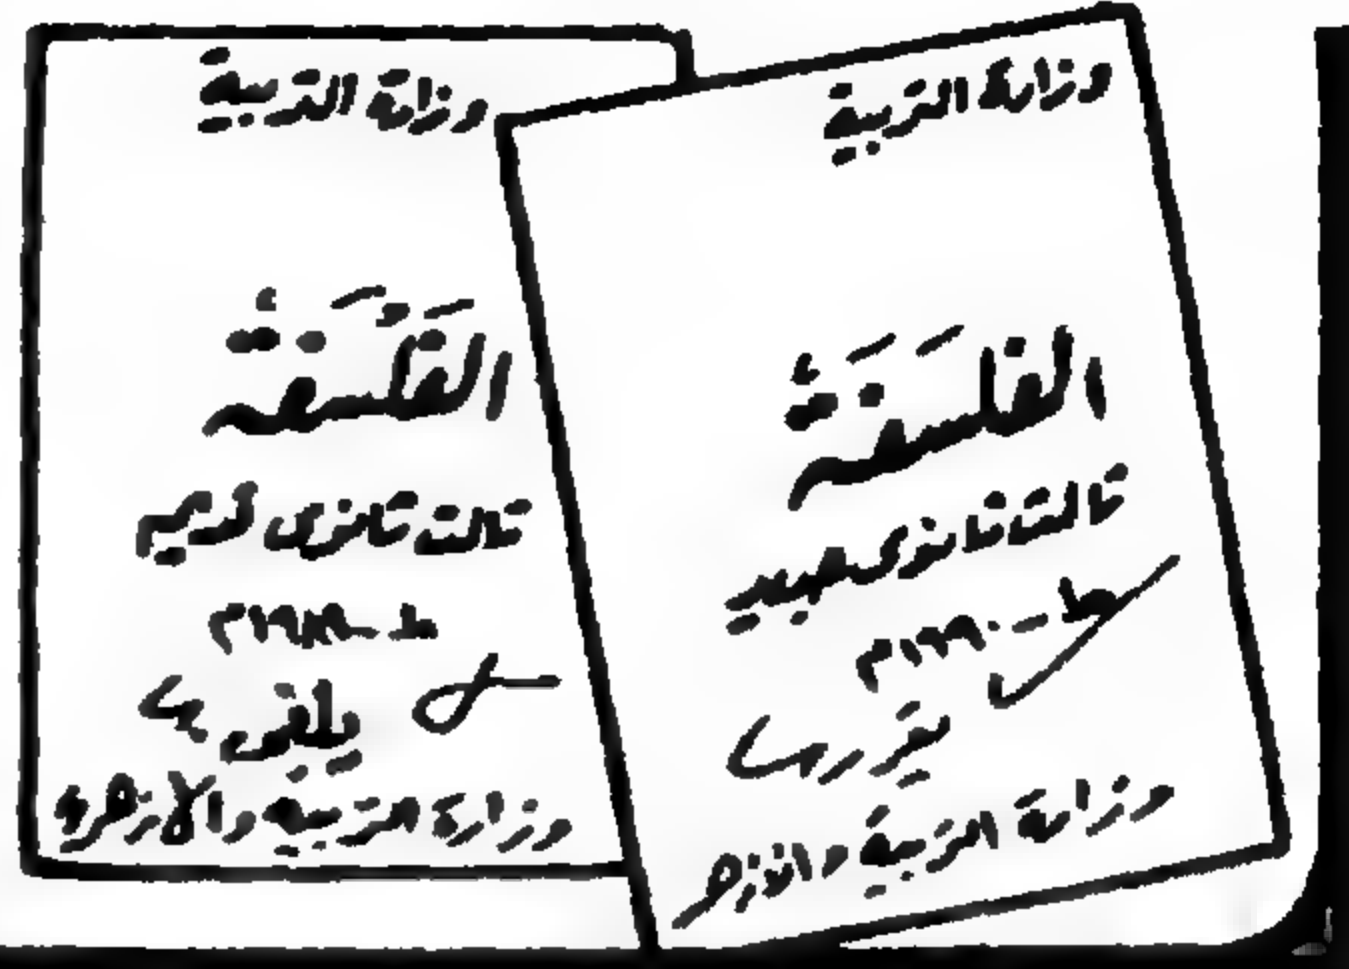 وزارة التربية
الفلسفة
ثالث ثانوى جديد
ط - ١٩٩٠م
يقررها
وزارة التربية والأزهر
وزارة التربية
الفلسفة
ثالث ثانوى قديم
ط - ١٩٨٩م
يلغى
وزارة التربية والأزهر